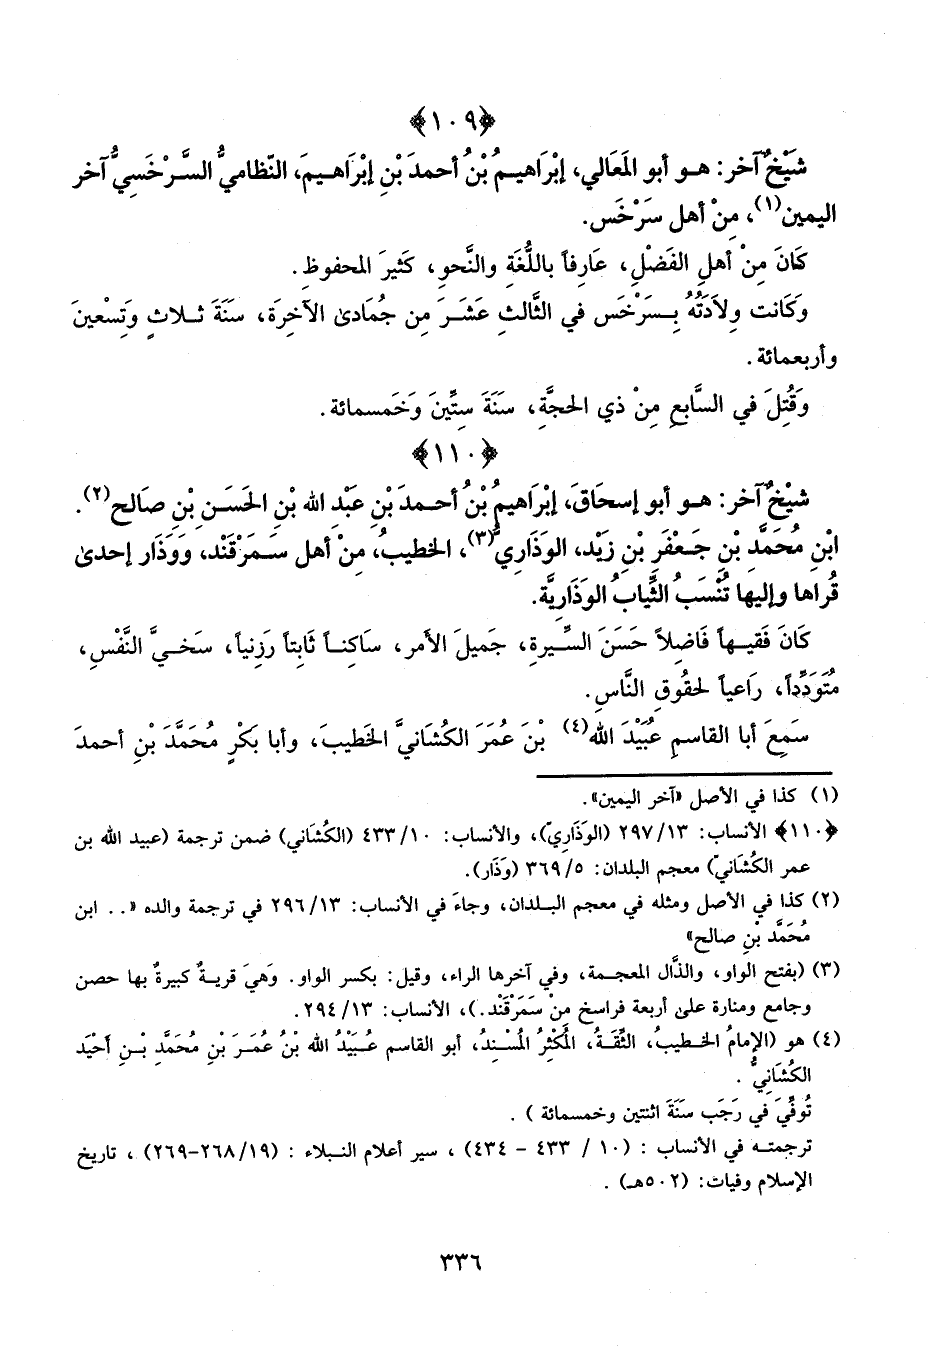 ﴿١٠٩﴾
شَيْخٌ آخر: هـو أبو المَعَالي، إبْرَاهيـمُ بْنُ أحمدَ بْنِ إبْرَاهـيمَ، النّظاميُّ السَّرْخَسِيُّ آخر
اليمين(١)، مِنْ أهل سَرْخَس.
كَانَ مِنْ أهلِ الفَضْلِ، عَارِفاً باللُّغَةِ والنَّحوِ، كَثيرَ المحفوظِ.
وَكَانت وِلاَدَتُهُ بِـسَرْخَس في الثَّالثِ عَشَـرَ مِن جُمَادىٰ الآخِرَة، سنَةَ ثـلاثٍ وَتِسْعينَ
وأربعمائة.
وَقُتِلَ في السَّابعِ مِنْ ذي الحجَّةِ، سَنَةَ ستِّينَ وَخَمسمائة.
﴿١١٠﴾
شيْخٌ آخر: هـو أبو إسحَاقَ، إبْرَاهيمُ بْنُ أحـمدَ بْنِ عبْدِ الله بْنِ الحَسَـنِ بْنِ صَالح(٢).
ابْنِ مُحَمَّدِ بْنِ جَـعْفَرِ بْنِ زَيْد، الوَذَاريّ(٣)، الخطيبُ، مِنْ أهل سَـمَرْقَند، وَوَذَار إحدىٰ
قُراها وإليها تُنْسَبُ الثِّيابُ الوَذَارِيَّة.
كَانَ فَقيـهاً فَاضِلاً حَسَنَ السِّـيرة، جَميلَ الأمر، سَاكِنـاً ثَابتاً رَزِنياً، سخَـيَّ النَّفْسِ،
مُتَوَدِّداً، رَاعياً لحقُوقِ النَّاس.
سَمِعَ أبا القاسمِ عُبَيْدَ الله(٤) بْنَ عُمَرَ الكُشَانيَّ الخَطيبَ، وأبا بَكْرٍ مُحَمَّدَ بْنِ أحمدَ
(١) كذا في الأصل «آخر اليمين».
﴿١١٠﴾ الأنساب: ٢٩٧/١٣ (الوَذَارِيّ)، والأنساب: ٤٣٣/١٠ (الكُشَاني) ضمن ترجمة (عبيد الله بن
عمر الكُشَانيّ) معجم البلدان: ٣٦٩/٥ (وَذَار).
(٢) كذا في الأصل ومثله في معجم البـلدان، وجاءَ في الأنساب: ٢٩٦/١٣ في ترجمة والده «.. ابن
مُحَمَّد بْنِ صالح»
(٣) (بفتح الواو، والذَّال المعجـمة، وفي آخرها الراء، وقيل: بكسر الواو. وَهيَ قريـةٌ كبيرةٌ بها حصن
وجامع ومنارة على أربعة فراسخ مِنْ سَمَرْقَنْد.)، الأنساب: ٢٩٤/١٣.
(٤) هو (الإمامُ الخـطيبُ، الثِّقَـةُ، المُكْثِرُ المُسْنِدُ، أبو القاسم عُـبَيْدُ الله بْنُ عُمَـرَ بْنِ مُحَمَّدِ بْـنِ أحْيَد
الكُشَانِيُّ .
تُوفِّيَ في رَجَب سَنَةَ اثنتين وخمسمائة ) .
ترجمتـه في الأنساب : (١٠ / ٤٣٣ - ٤٣٤) ، سير أعلام النـبلاء : (٢٦٨/١٩-٢٦٩) ، تاريخ
الإسلام وفيات: (٥٠٢هـ) .
٣٣٦